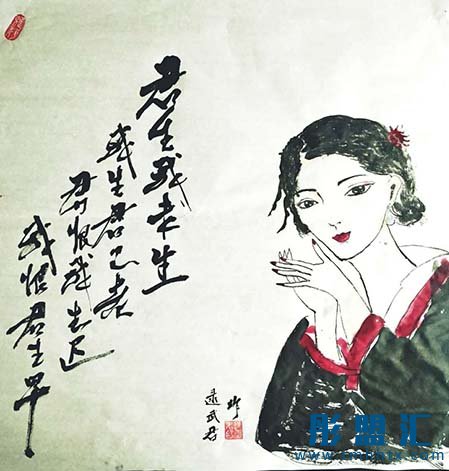 君生我未生
我生君已老
君恨我生迟
我恨君生早
彤盟汇